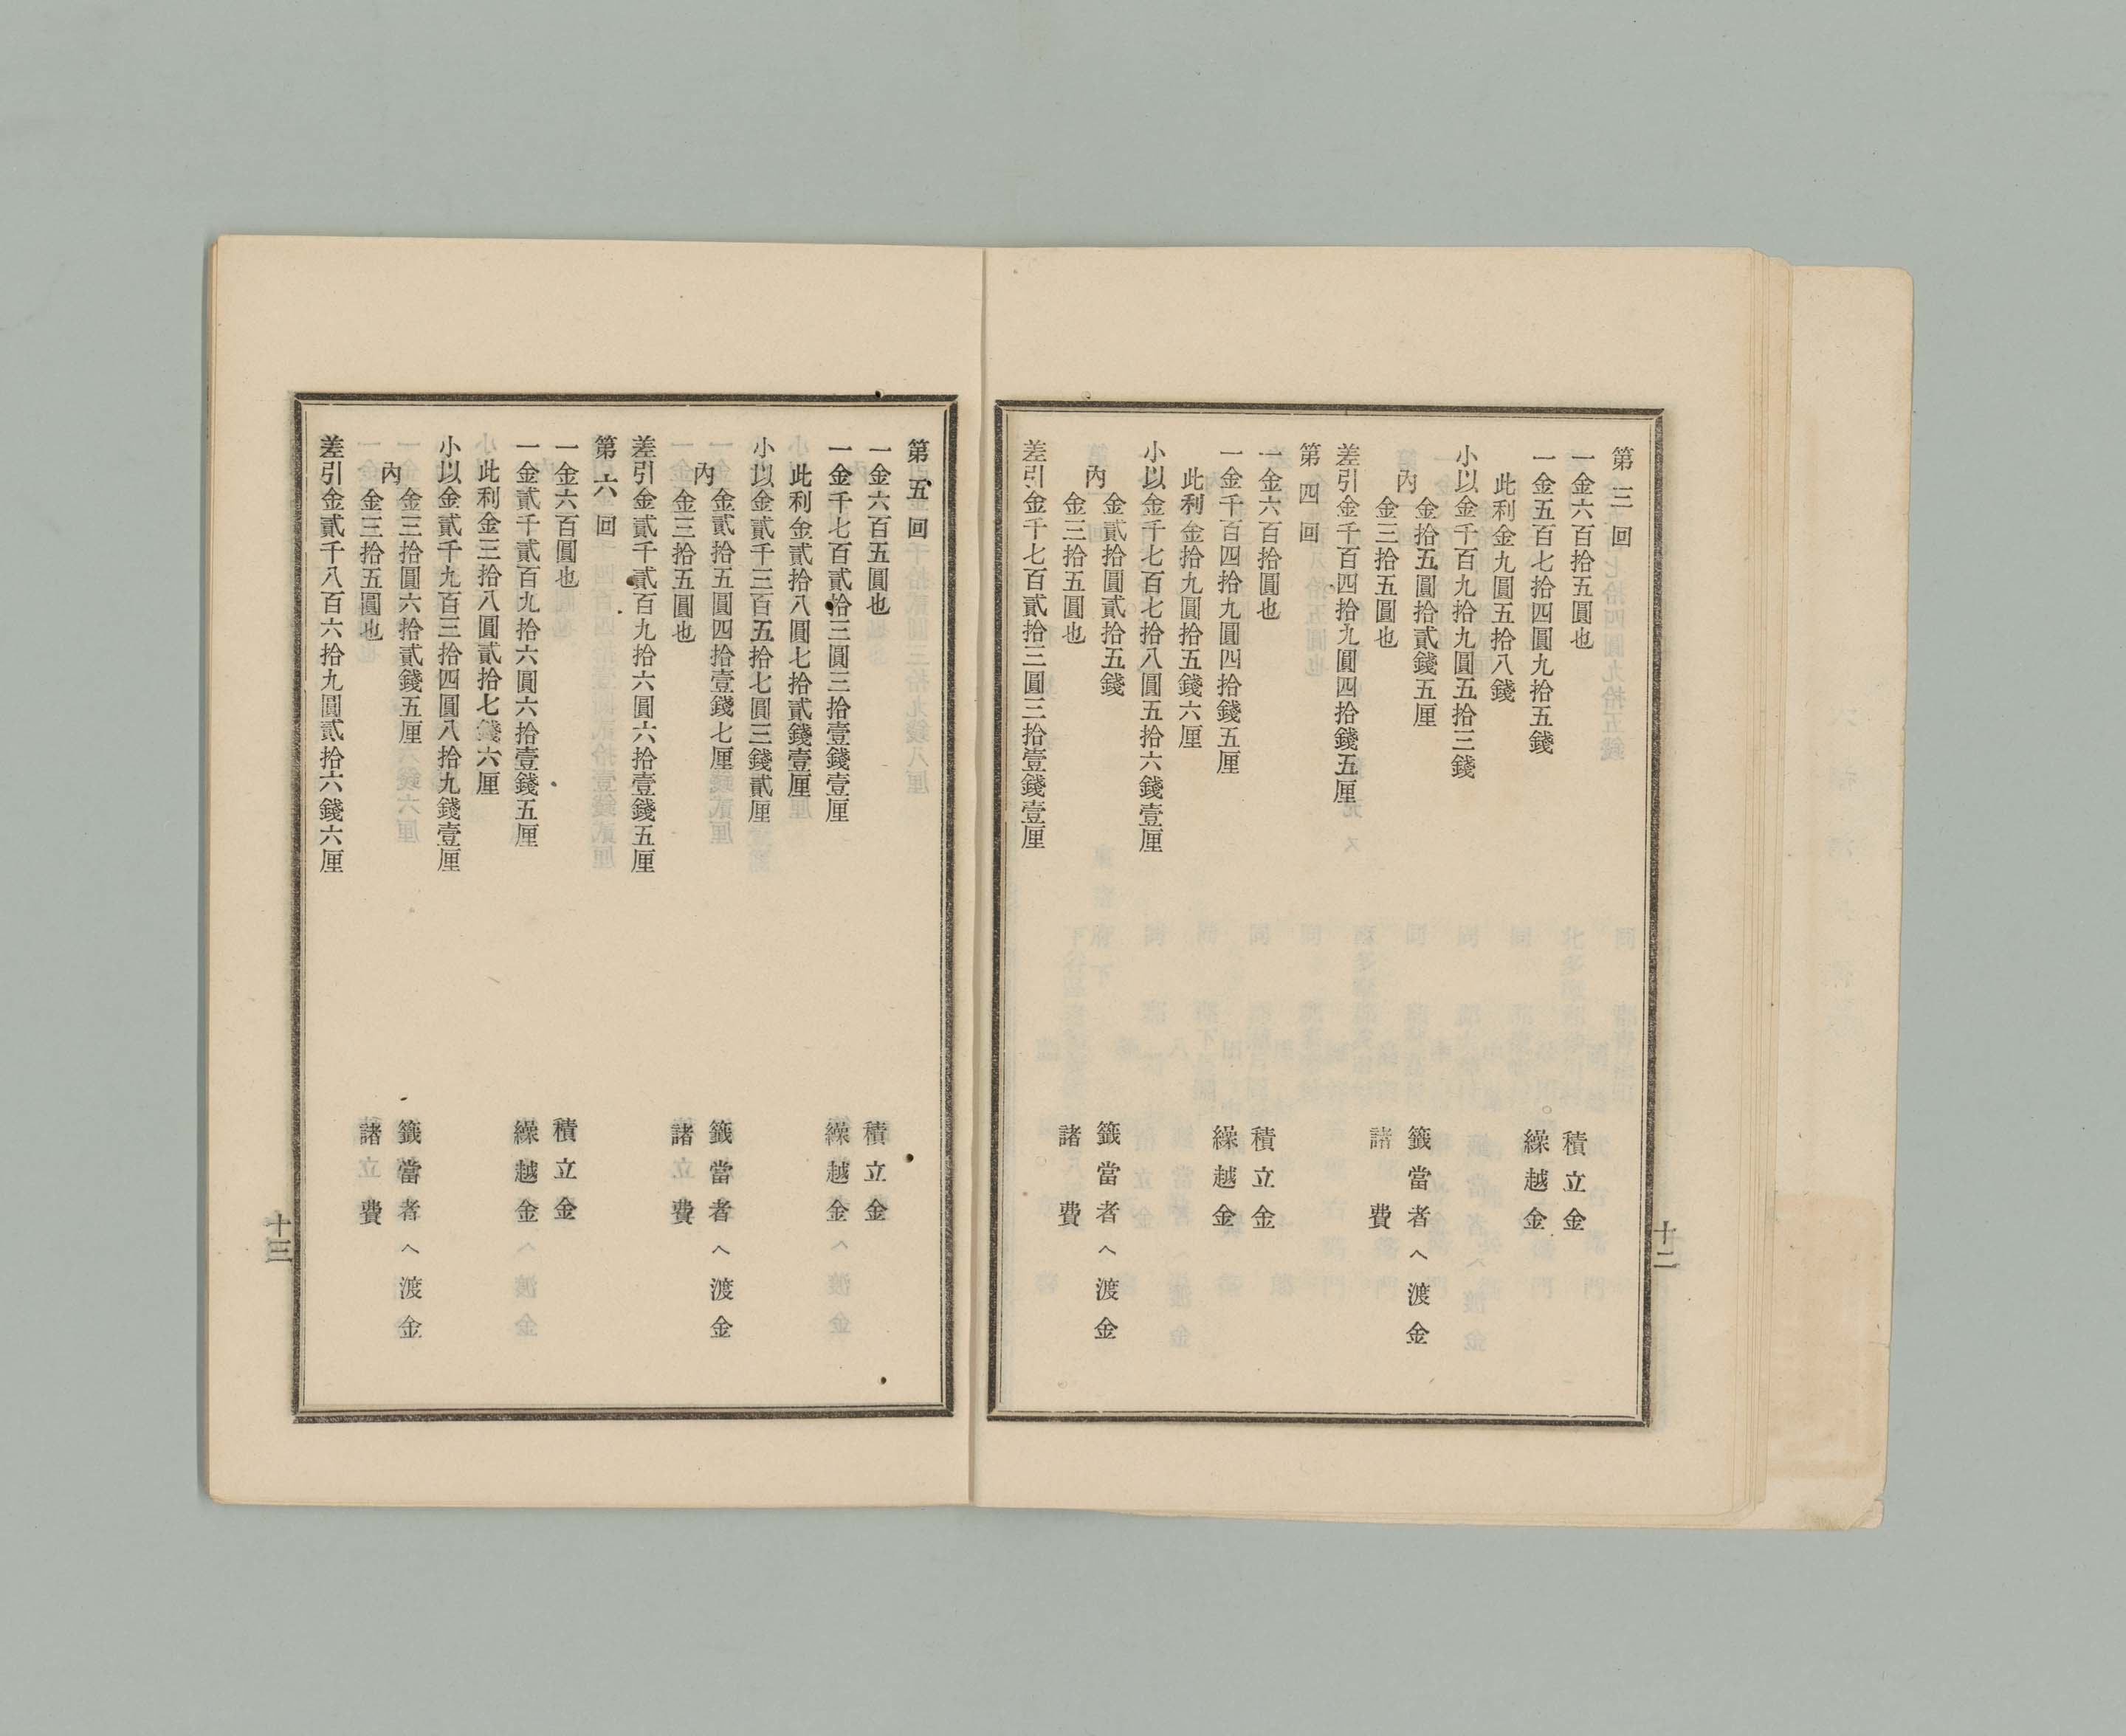 第三回
一金六百拾五圓也　積立金
一金五百七拾四圓九拾五錢　繰越金
此利金九圓五拾八錢
小以金千百九拾九圓五拾三錢
內
金拾五圓拾貳錢五厘　籤當者へ渡金
金三拾五圓也　諸費
差引金千百四拾九圓四拾錢五厘
第四回
一金六百拾圓也　積立金
一金千百四拾九圓四拾錢五厘　繰越金
此利金拾九圓拾五錢六厘
小以金千七百七拾八圓五拾六錢壹厘
內
金貳拾圓貳拾五錢　籤當者へ渡金
金三拾五圓也　諸費
差引金千七百貳拾三圓三拾壹錢壹厘
十二
第五回
一金六百五圓也　積立金
一金千七百貳拾三圓三拾壹錢壹厘　繰越金
此利金貳拾八圓七拾貳錢壹厘
小以金貳千三百五拾七圓三錢貳厘
內
金貳拾五圓四拾壹錢七厘　籤當者へ渡金
金三拾五圓也　諸費
差引金貳千貳百九拾六圓六拾壹錢五厘
第六回
一金六百圓也　積立金
一金貳千貳百九拾六圓六拾壹錢五厘　繰越金
此利金三拾八圓貳拾七錢六厘
小以金貳千九百三拾四圓八拾九錢壹厘
內
金三拾圓六拾貳錢五厘　籤當者へ渡金
金三拾五圓也　諸費
差引金貳千八百六拾九圓貳拾六錢六厘
十三